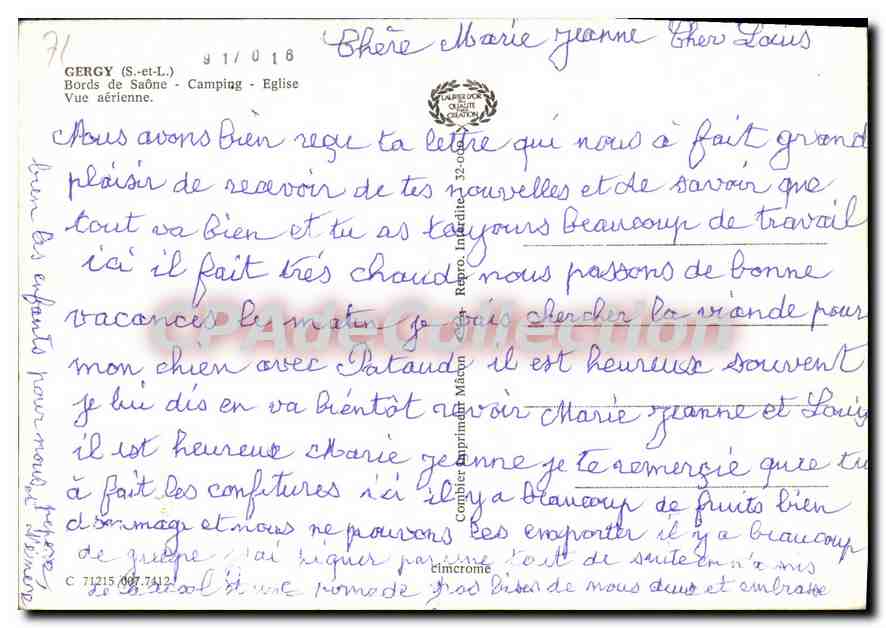 71
91/018
Chère Marie Jeanne Cher Louis
GERGY (S.-et-L.)
Bords de Saône - Camping - Eglise
Vue aérienne.
LAURIER D'OR
DE LA
QUALITÉ
CRÉATION
Nous avons bien reçu ta lettre qui nous à fait grand
plaisir de recevoir de tes nouvelles et de savoir que
tout va bien et tu as toujours beaucoup de travail
ici il fait trés chaud nous passons de bonne
vacances le matin je vais chercher la viande pour
mon chien avec Pataud il est heureux souvent
je lui dis en va bientôt revoir Marie Jeanne et Louis
il est heureux Marie Jeanne je te remerçie que tu
à fait les confitures ici il y a beaucoup de fruits bien
dommage et nous ne pouvons les emporter il y a beaucoup
de guêpe j'ai piquer par une tout de suite on n'a mis
de l'alcool et une pomade gros bises de nous deux et embrasse
bien les enfants pour nous
Combier Imprimeur Mâcon Repro. Interdite 32-000
cimcrome
C 71215 007.7412
CPAdeCollection